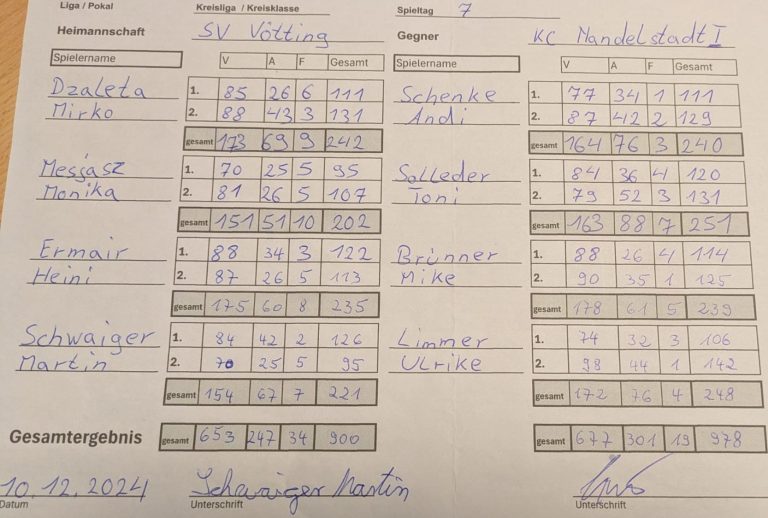 Liga / Pokal Kreisliga / Kreisklasse Spieltag 7
Heimannschaft SV Vötting Gegner KC Mandelstadt I
Spielername V A F Gesamt Spielername V A F Gesamt
Dzaleta 1. 85 26 6 111 Schenke 1. 77 34 1 111
Mirko 2. 88 43 3 131 Andi 2. 87 42 2 129
gesamt 173 69 9 242 gesamt 164 76 3 240
Messasz 1. 70 25 5 95 Solleder 1. 84 36 4 120
Monika 2. 81 26 5 107 Toni 2. 79 52 3 131
gesamt 151 51 10 202 gesamt 163 88 7 251
Ermair 1. 88 34 3 122 Brünner 1. 88 26 4 114
Heini 2. 87 26 5 113 Mike 2. 90 35 1 125
gesamt 175 60 8 235 gesamt 178 61 5 239
Schwaiger 1. 84 42 2 126 Limmer 1. 74 32 3 106
Martin 2. 70 25 5 95 Ulrike 2. 98 44 1 142
gesamt 154 67 7 221 gesamt 172 76 4 248
Gesamtergebnis gesamt 653 247 34 900 gesamt 677 301 19 978
10.12.2024 Schwaiger Martin
Datum Unterschrift Unterschrift